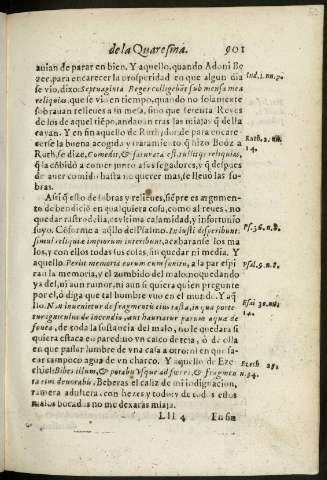 de la Quaresma. 901
auian de parar en bien. Y aquello, quando Adoni Be
zec, para encarecer la prosperidad en que algun dia
se vio, dixo: Septuaginta Reges colligebãt sub mensa mea
reliquias, que se vio en tiempo, quando no solamente
sobrauan relieues a su mesa, sino que setenta Reyes
de los de aquel tiẽpo, andauan tras las miajas q̃ della
cayan. Y en fin aquello de Ruth, donde para encare-
cerse la buena acogida y tratamiento q̃ hizo Booz a
Ruth, se dize, Comedit, & saturata est, tulitq; reliquias,
q̃ la cõbidò a comer junto a sus segadores, y q̃ despues
de auer comido hasta no querer mas, se lleuò las so-
bras.
Assi q̃ esto de sobras y relieues, siẽpre es argumen-
to de bendiciõ en qualquiera cosa, como al reues, no
quedar rastro della, es vltima calamidad, y infortunio
suyo. Cõforme a aq̃llo del Psalmo. Iniusti disperibunt:
simul reliquiæ impiorum interibunt, acabaranse los ma-
los, y con ellos todas sus cosas, sin quedar ni media. Y
aquello. Perijt memoria eorum cum sonitu, a la par espi
rarà la memoria, y el zumbido del malo, no quedando
ya del, ni aun rumor, ni aun si quiera quien pregunte
por el, ò diga que tal hombre vuo en el mundo. Y aq̃
llo. Non inuenietur de fragmentis eius testa, in qua porte
tur igniculus de incendio, aut hauriatur parum aquæ de
fouea, de toda la sustancia del malo, no le quedara si
quiera
en que pastor lumbre de vna casa a otro: ni en que sa-
car tampoco agua de vn charco. Y aquello de Eze-
chiel: Bibes illum, & potabis vsque ad fæces, & fragmen
ta eius deuorabis. Beberas el caliz de mi indignacion,
ramera adultera, con hezes y todo: y de todos estos
malos bocados no me dexaràs miaja.
Lll 4 En fin
Iud. 1. nu. 7.
Ruth. 2. nu.
14.
Ps. 36. n. 8.
Psal. 9. n. 8.
Esai 30. nu.
14.
Ezech. 23.
n. 34.